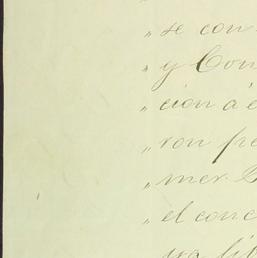 " se con
" y Con
" cion á
" ron pre
" mer.
" el conc